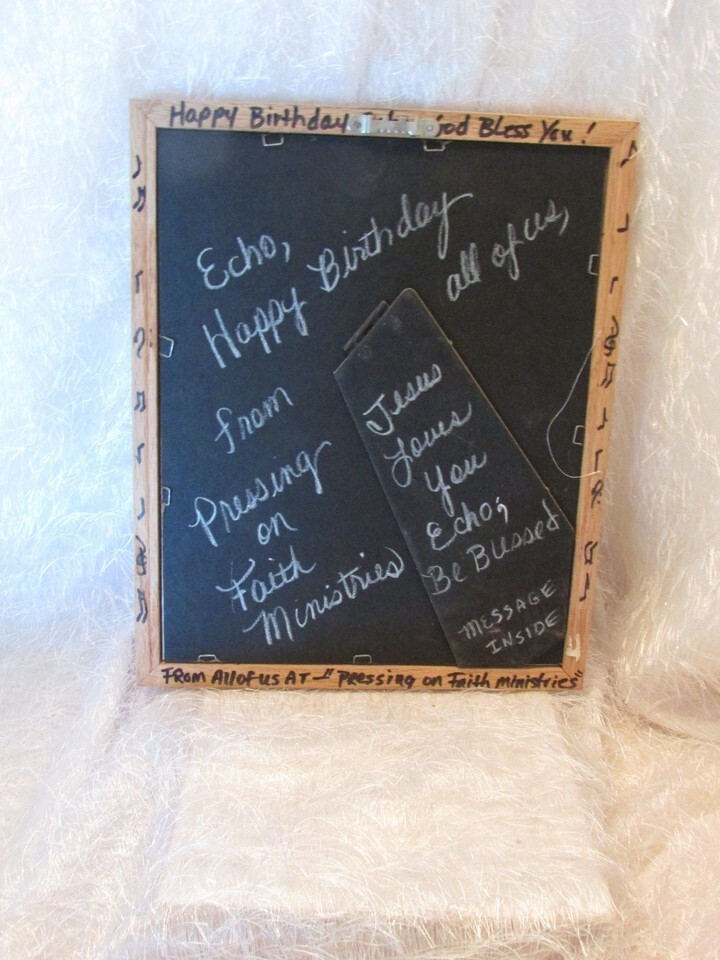 Happy Birthday God Bless You!
Echo,
Happy Birthday
all of us,
from
Pressing
on
Faith
Ministries
Jesus
Loves
You
Echo;
Be Blessed
MESSAGE
INSIDE
FROM All of us AT - "Pressing on Faith ministries"